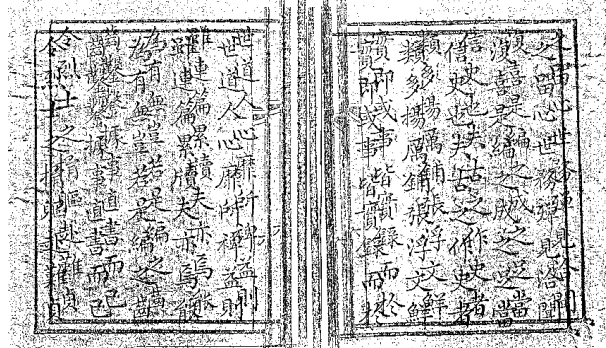 之留心世務殫見洽聞
喜是編之成之足當
信史也夫古之作史者
類多揚厲鋪張浮文鮮
實即或事皆實錄而於
世道人心靡所裨益則
雖連篇累牘夫亦焉
為有無豈若是編之
鑿鑿據事直書而已
令烈士之捐軀赴難貞